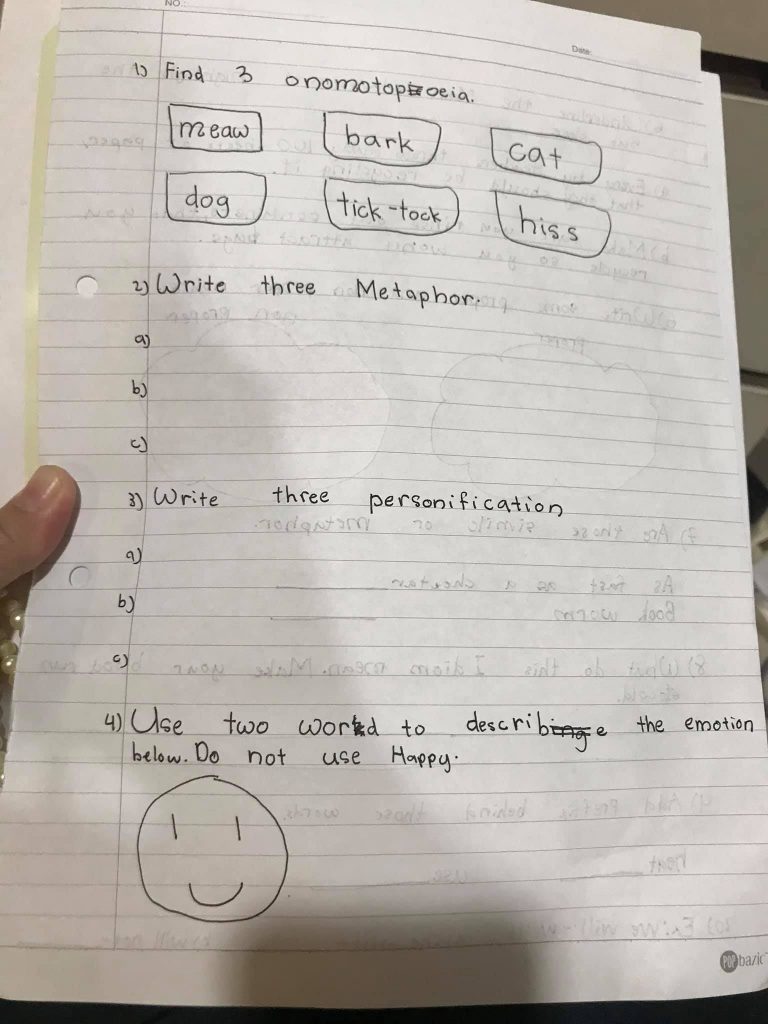 NO.:
Date:
1) Find 3 onomotopoeia.
meaw bark cat
dog tick-tock hiss
2) Write three Metaphor.
a)
b)
c)
3) Write three personification
a)
b)
c)
4) Use two word to describe the emotion
below. Do not use Happy.
POP bazic